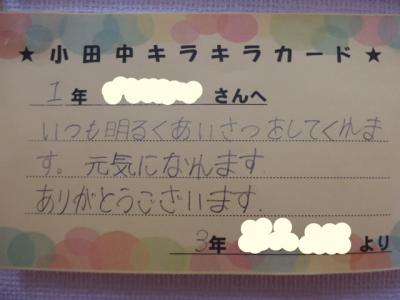 ★小田中キラキラカード★
1年 さんへ
いつも明るくあいさつをしてくれま
す。元気になれます
ありがとうございます.
3年 より